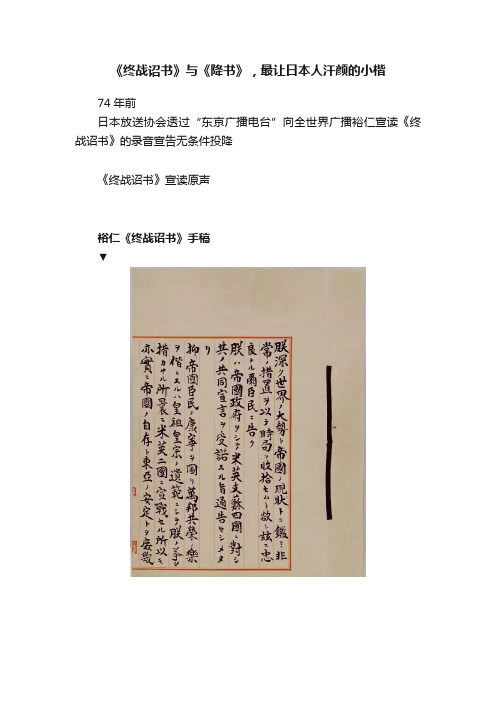 《终战诏书》与《降书》，最让日本人汗颜的小楷
74 年前
日本放送协会透过“东京广播电台”向全世界广播裕仁宣读《终
战诏书》的录音宣告无条件投降
《终战诏书》宣读原声
裕仁《终战诏书》手稿
▼
朕深ク世界ノ大勢ト帝國ノ現狀トニ鑑ミ非
常ノ措置ヲ以テ時局ヲ收拾セムト欲シ茲ニ忠
良ナル爾臣民ニ告ク
朕ハ帝國政府ヲシテ米英支蘇四國ニ對シ
其ノ共同宣言ヲ受諾スル旨通告セシメタ
リ
抑帝國臣民ノ康寧ヲ圖リ萬邦共榮ノ樂
ヲ偕ニスルハ皇祖皇宗ノ遺範ニシテ朕ノ拳々
措カサル所曩ニ米英二國ニ宣戰セル所以モ
亦實ニ帝國ノ自存ト東亞ノ安定トヲ庶幾